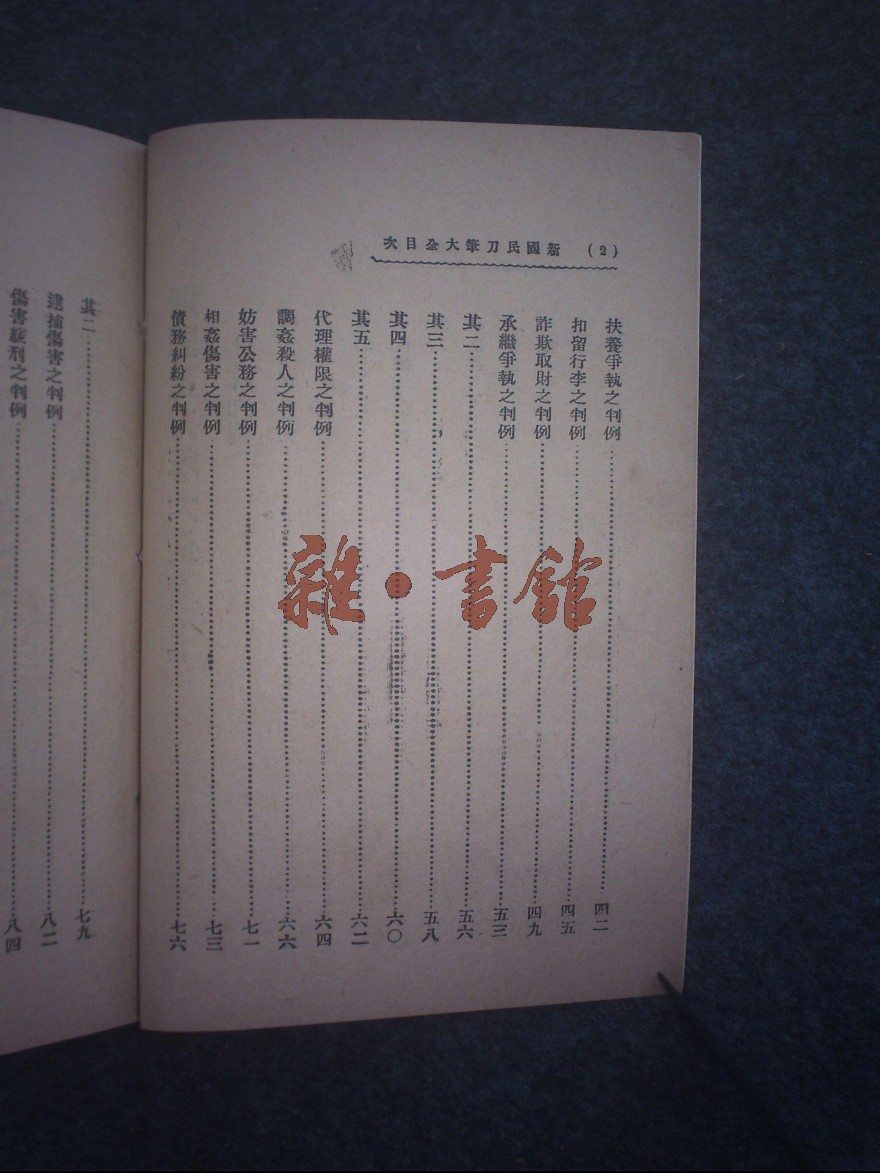 (2) 新國民刀筆大全目次
扶養爭執之判例……四二
扣留行李之判例……四五
詐欺取財之判例……四九
承繼爭執之判例……五三
其二……五六
其三……五八
其四……六〇
其五……六二
代理權限之判例……六四
調姦殺人之判例……六六
妨害公務之判例……七一
相姦傷害之判例……七三
債務糾紛之判例……七六
其二……七九
逮捕傷害之判例……八二
傷害緩刑之判例……八四
雜·書館